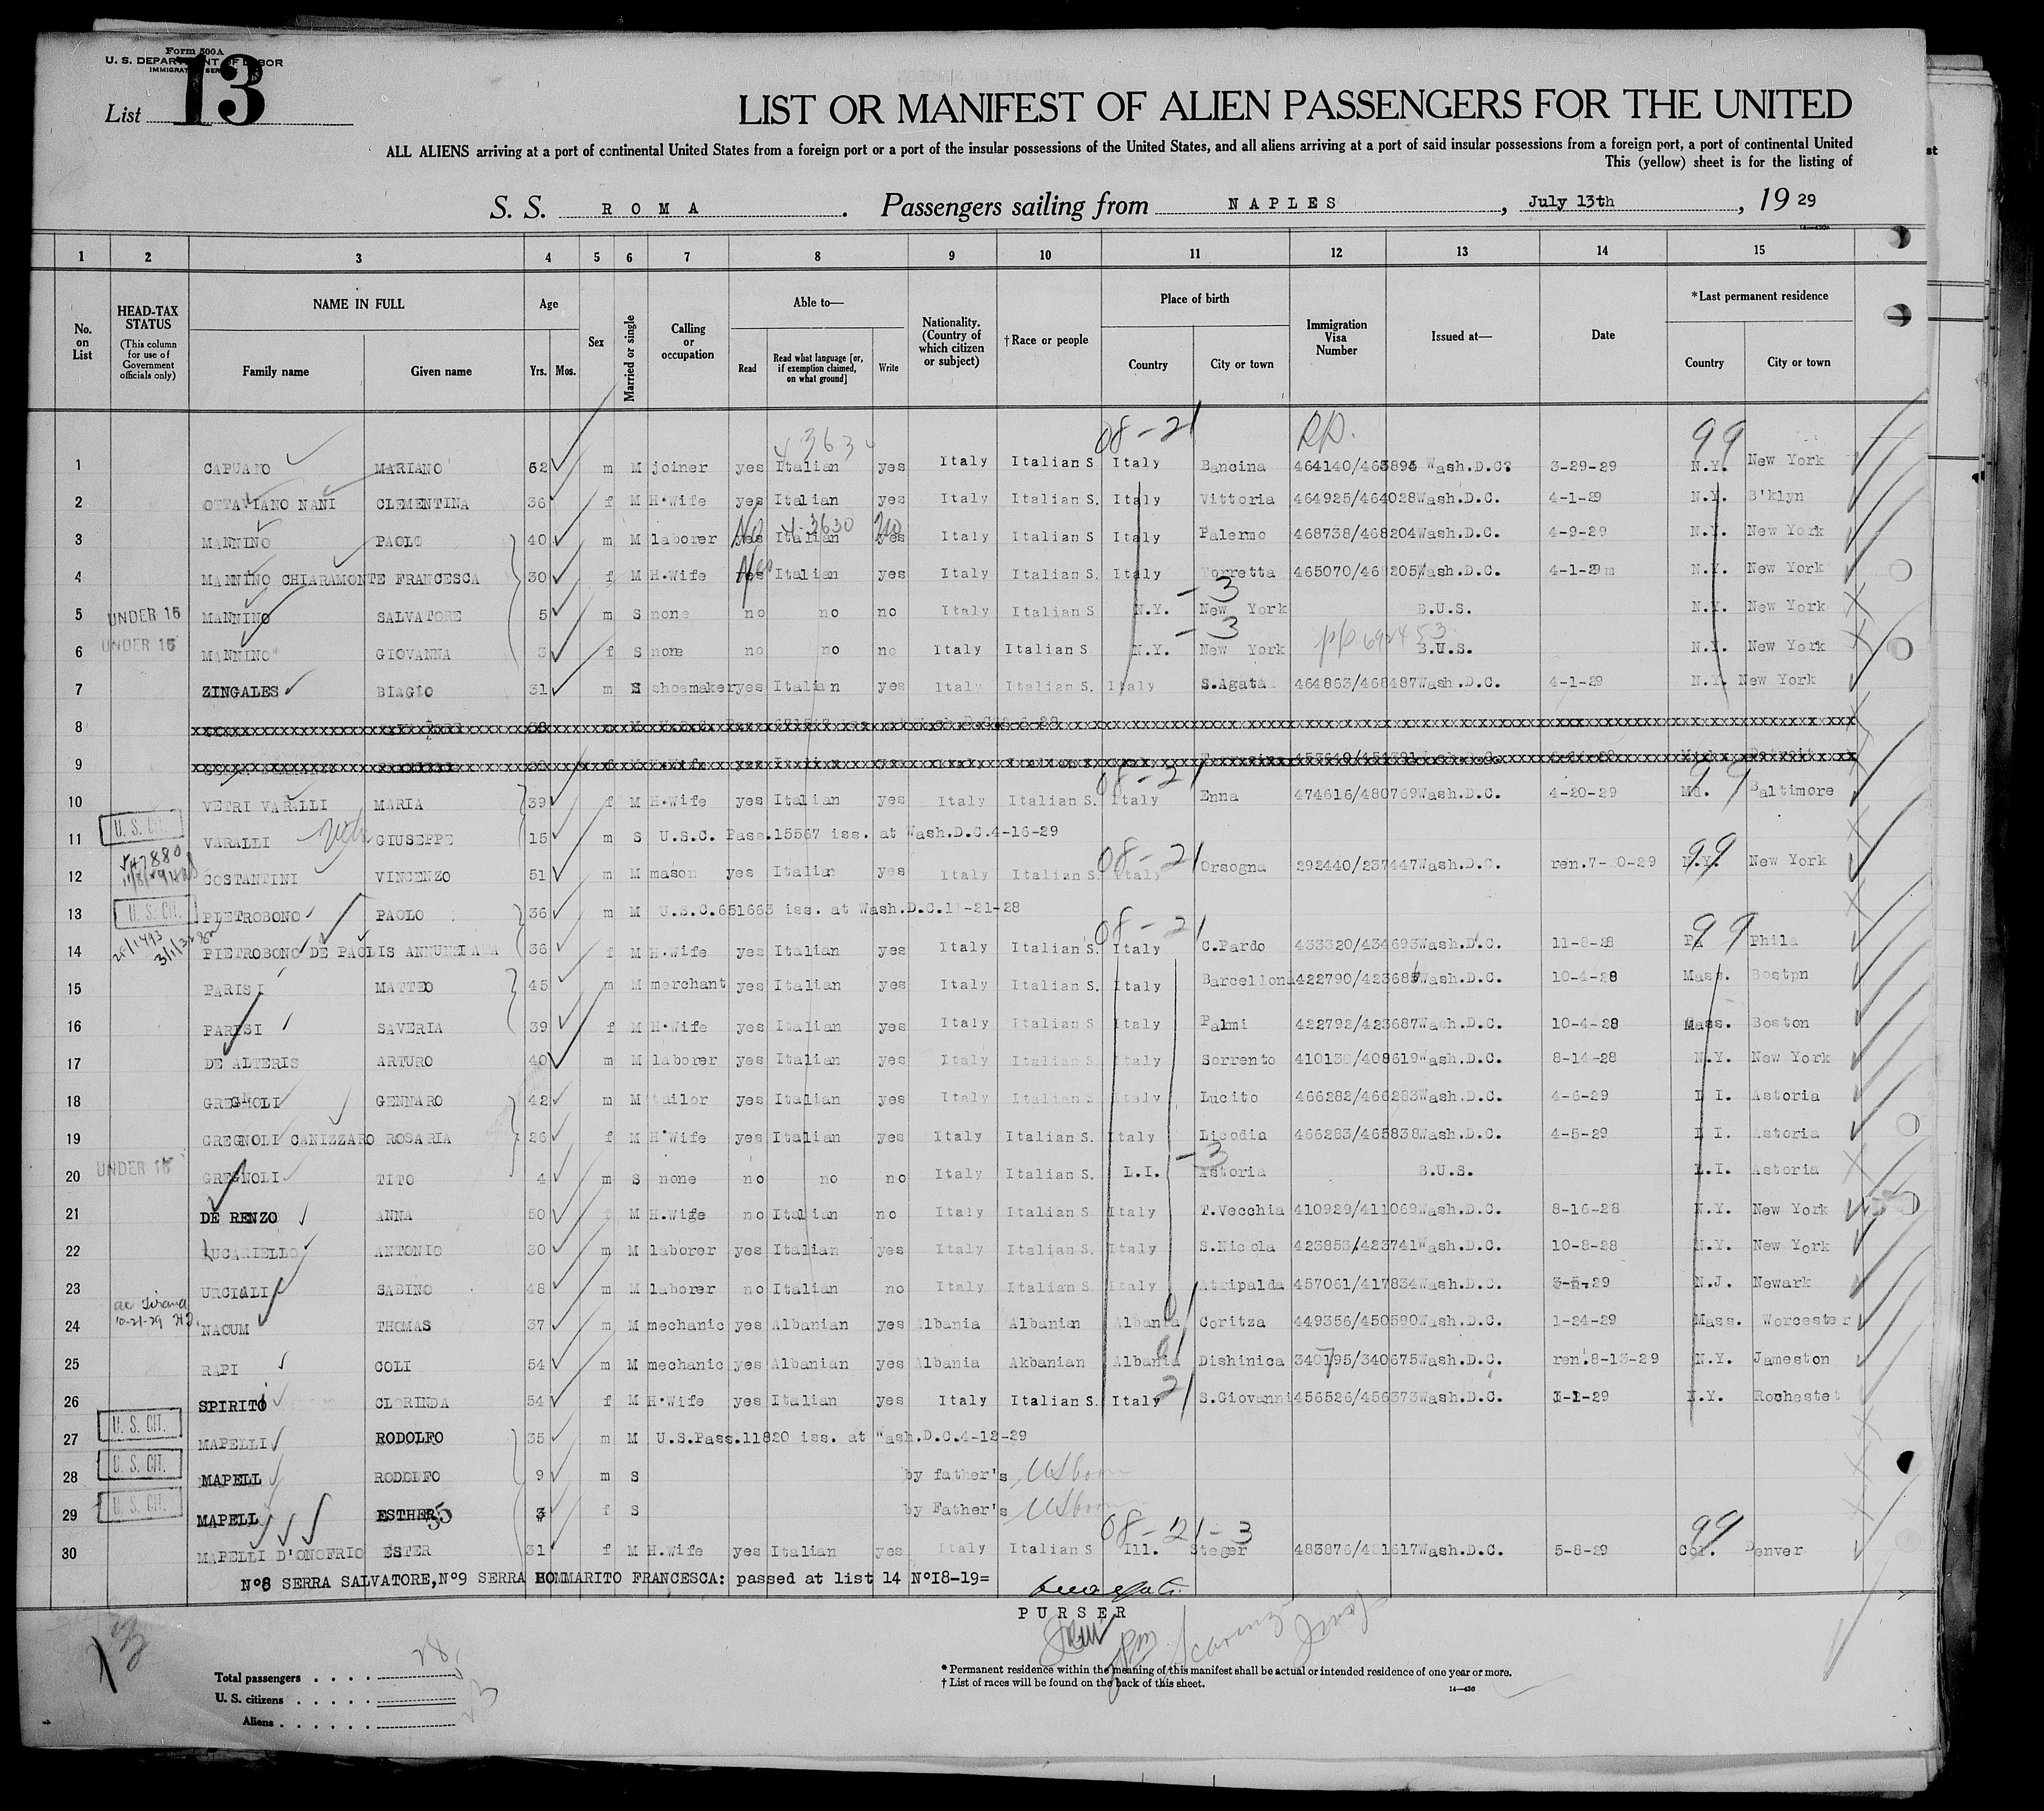 Form 500A
U. S. DEPARTMENT OF LABOR
IMMIGRATION SERVICE
List 13
LIST OR MANIFEST OF ALIEN PASSENGERS FOR THE UNITED
ALL ALIENS arriving at a port of continental United States from a foreign port or a port of the insular possessions of the United States, and all aliens arriving at a port of said insular possessions from a foreign port, a port of continental United
This (yellow) sheet is for the listing of
S. S. ROMA. Passengers sailing from NAPLES, July 13th, 19 29
1 2 3 4 5 6 7 8 9 10 11 12 13 14 15
No. on List
HEAD-TAX STATUS (This column for use of Government officials only)
NAME IN FULL Family name Given name
Age Yrs. Mos.
Sex
Married or single
Calling or occupation
Able to— Read Read what language [or, if exemption claimed, on what ground] Write
Nationality. (Country of which citizen or subject)
†Race or people
Place of birth Country City or town
Immigration Visa Number
Issued at—
Date
*Last permanent residence Country City or town
08-21 99
1 CAPUANO MARIANO 52 m M joiner yes Italian yes Italy Italian S Italy Bancina 464140/463895 Wash.D.C. 3-29-29 N.Y. New York
2 OTTAVIANO NANI CLEMENTINA 36 f M H.Wife yes Italian yes Italy Italian S. Italy Vittoria 464925/464028 Wash.D.C. 4-1-29 N.Y. B'klyn
3 MANNINO PAOLO 40 m M laborer yes No Italian yes no Italy Italian S Italy Palermo 468738/468204 Wash.D.C. 4-9-29 N.Y. New York
4 MANNINO CHIARAMONTE FRANCESCA 30 f M H.Wife yes Italian yes Italy Italian S. Italy Torretta 465070/468205 Wash.D.C. 4-1-29 N.Y. New York
5 UNDER 16 MANNINO SALVATORE 5 m S none no no no Italy Italian S N.Y. New York -3 B.U.S. N.Y. New York
6 UNDER 16 MANNINO GIOVANNA 3 f S none no no no Italy Italian S N.Y. New York -3 B.U.S. N.Y. New York
7 ZINGALES BIAGIO 31 m S shoemaker yes Italian yes Italy Italian S. Italy S.Agata 464863/468487 Wash.D.C. 4-1-29 N.Y. New York
8
9
08-21 99
10 VETRI VARALLI MARIA 39 f M H.Wife yes Italian yes Italy Italian S. Italy Enna 474616/480769 Wash.D.C. 4-20-29 Md. Baltimore
11 U. S. CIT. VARALLI GIUSEPPE 15 m S U.S.C. Pass.15567 iss. at Wash.D.C.4-16-29
08-21 99
12 COSTANTINI VINCENZO 51 m M mason yes Italian yes Italy Italian S Italy Orsogna 292440/237447 Wash.D.C. N.Y. New York
13 U. S. CIT. PIETROBONO PAOLO 36 m M U.S.C.651663 iss. at Wash.D.C.11-21-28
08-21 99
14 PIETROBONO DE PAOLIS ANNUNZIATA 36 f M H.Wife yes Italian yes Italy Italian S. Italy C.Pardo 433320/434693 Wash.D.C. 11-8-28 Pa Phila
15 PARISI MATTEO 45 m M merchant yes Italian yes Italy Italian S. Italy Barcellona 422790/423685 Wash.D.C. 10-4-28 Mass. Bostpn
16 PARISI SAVERIA 39 f M H.Wife yes Italian yes Italy Italian S Italy Palmi 422792/423687 Wash.D.C. 10-4-28 Mass. Boston
17 DE ALTERIS ARTURO 40 m M laborer yes Italian yes Italy Italian S Italy Sorrento 410130/408619 Wash.D.C. 8-14-28 N.Y. New York
18 GREGNOLI GENNARO 42 m M tailor yes Italian yes Italy Italian S Italy Lucito 466282/466283 Wash.D.C. 4-6-29 L I. Astoria
19 GREGNOLI CANIZZARO ROSARIA 26 f M H.Wife yes Italian yes Italy Italian S. Italy Licodia 466283/465838 Wash.D.C. 4-5-29 L I. Astoria
20 UNDER 16 GREGNOLI TITO 4 m S none no no no Italy Italian S. L.I. Astoria -3 B.U.S. L.I. Astoria
21 DE RENZO ANNA 50 f M H.Wife no Italian no Italy Italian S. Italy T.Vecchia 410929/411069 Wash.D.C. 8-16-28 N.Y. New York
22 LUCARIELLO ANTONIO 30 m M laborer yes Italian yes Italy Italian S. Italy S.Nicola 423853/423741 Wash.D.C. 10-8-28 N.Y. New York
23 URCIALI SABINO 48 m M laborer no Italian no Italy Italian S Italy Atripalda 457061/417834 Wash.D.C. 3-5-29 N.J. Newark
24 NACUM THOMAS 37 m M mechanic yes Albanian yes Albania Albanian Albania Coritza 449356/450590 Wash.D.C. 1-24-29 Mass. Worcester
25 RAPI COLI 54 m M mechanic yes Albanian yes Albania Akbanian Albania Dishinica 340795/340675 Wash.D.C. ren.8-13-29 N.Y. Jameston
26 SPIRITO CLORINDA 54 f M H.Wife yes Italian yes Italy Italian S. Italy 21 S.Giovanni 456526/456373 Wash.D.C. N.Y. Rochester
27 U. S. CIT. MAPELLI RODOLFO 35 m M U.S.Pass.11820 iss. at Wash.D.C.4-12-29
28 U. S. CIT. MAPELL RODOLFO 9 m S by father's US born
29 U. S. CIT. MAPELL ESTHER f S by Father's US born
08-21-3 99
30 MAPELLI D'ONOFRIO ESTER 31 f M H.Wife yes Italian yes Italy Italian S Ill. Steger 483876/481617 Wash.D.C. 5-8-29 Col. Denver
N°8 SERRA SALVATORE,N°9 SERRA BOMMARITO FRANCESCA: passed at list 14 N°18-19=
PURSER
Total passengers . . . . 28
U. S. citizens . . . . .
Aliens . . . . . .
* Permanent residence within the meaning of this manifest shall be actual or intended residence of one year or more.
† List of races will be found on the back of this sheet.
14—430